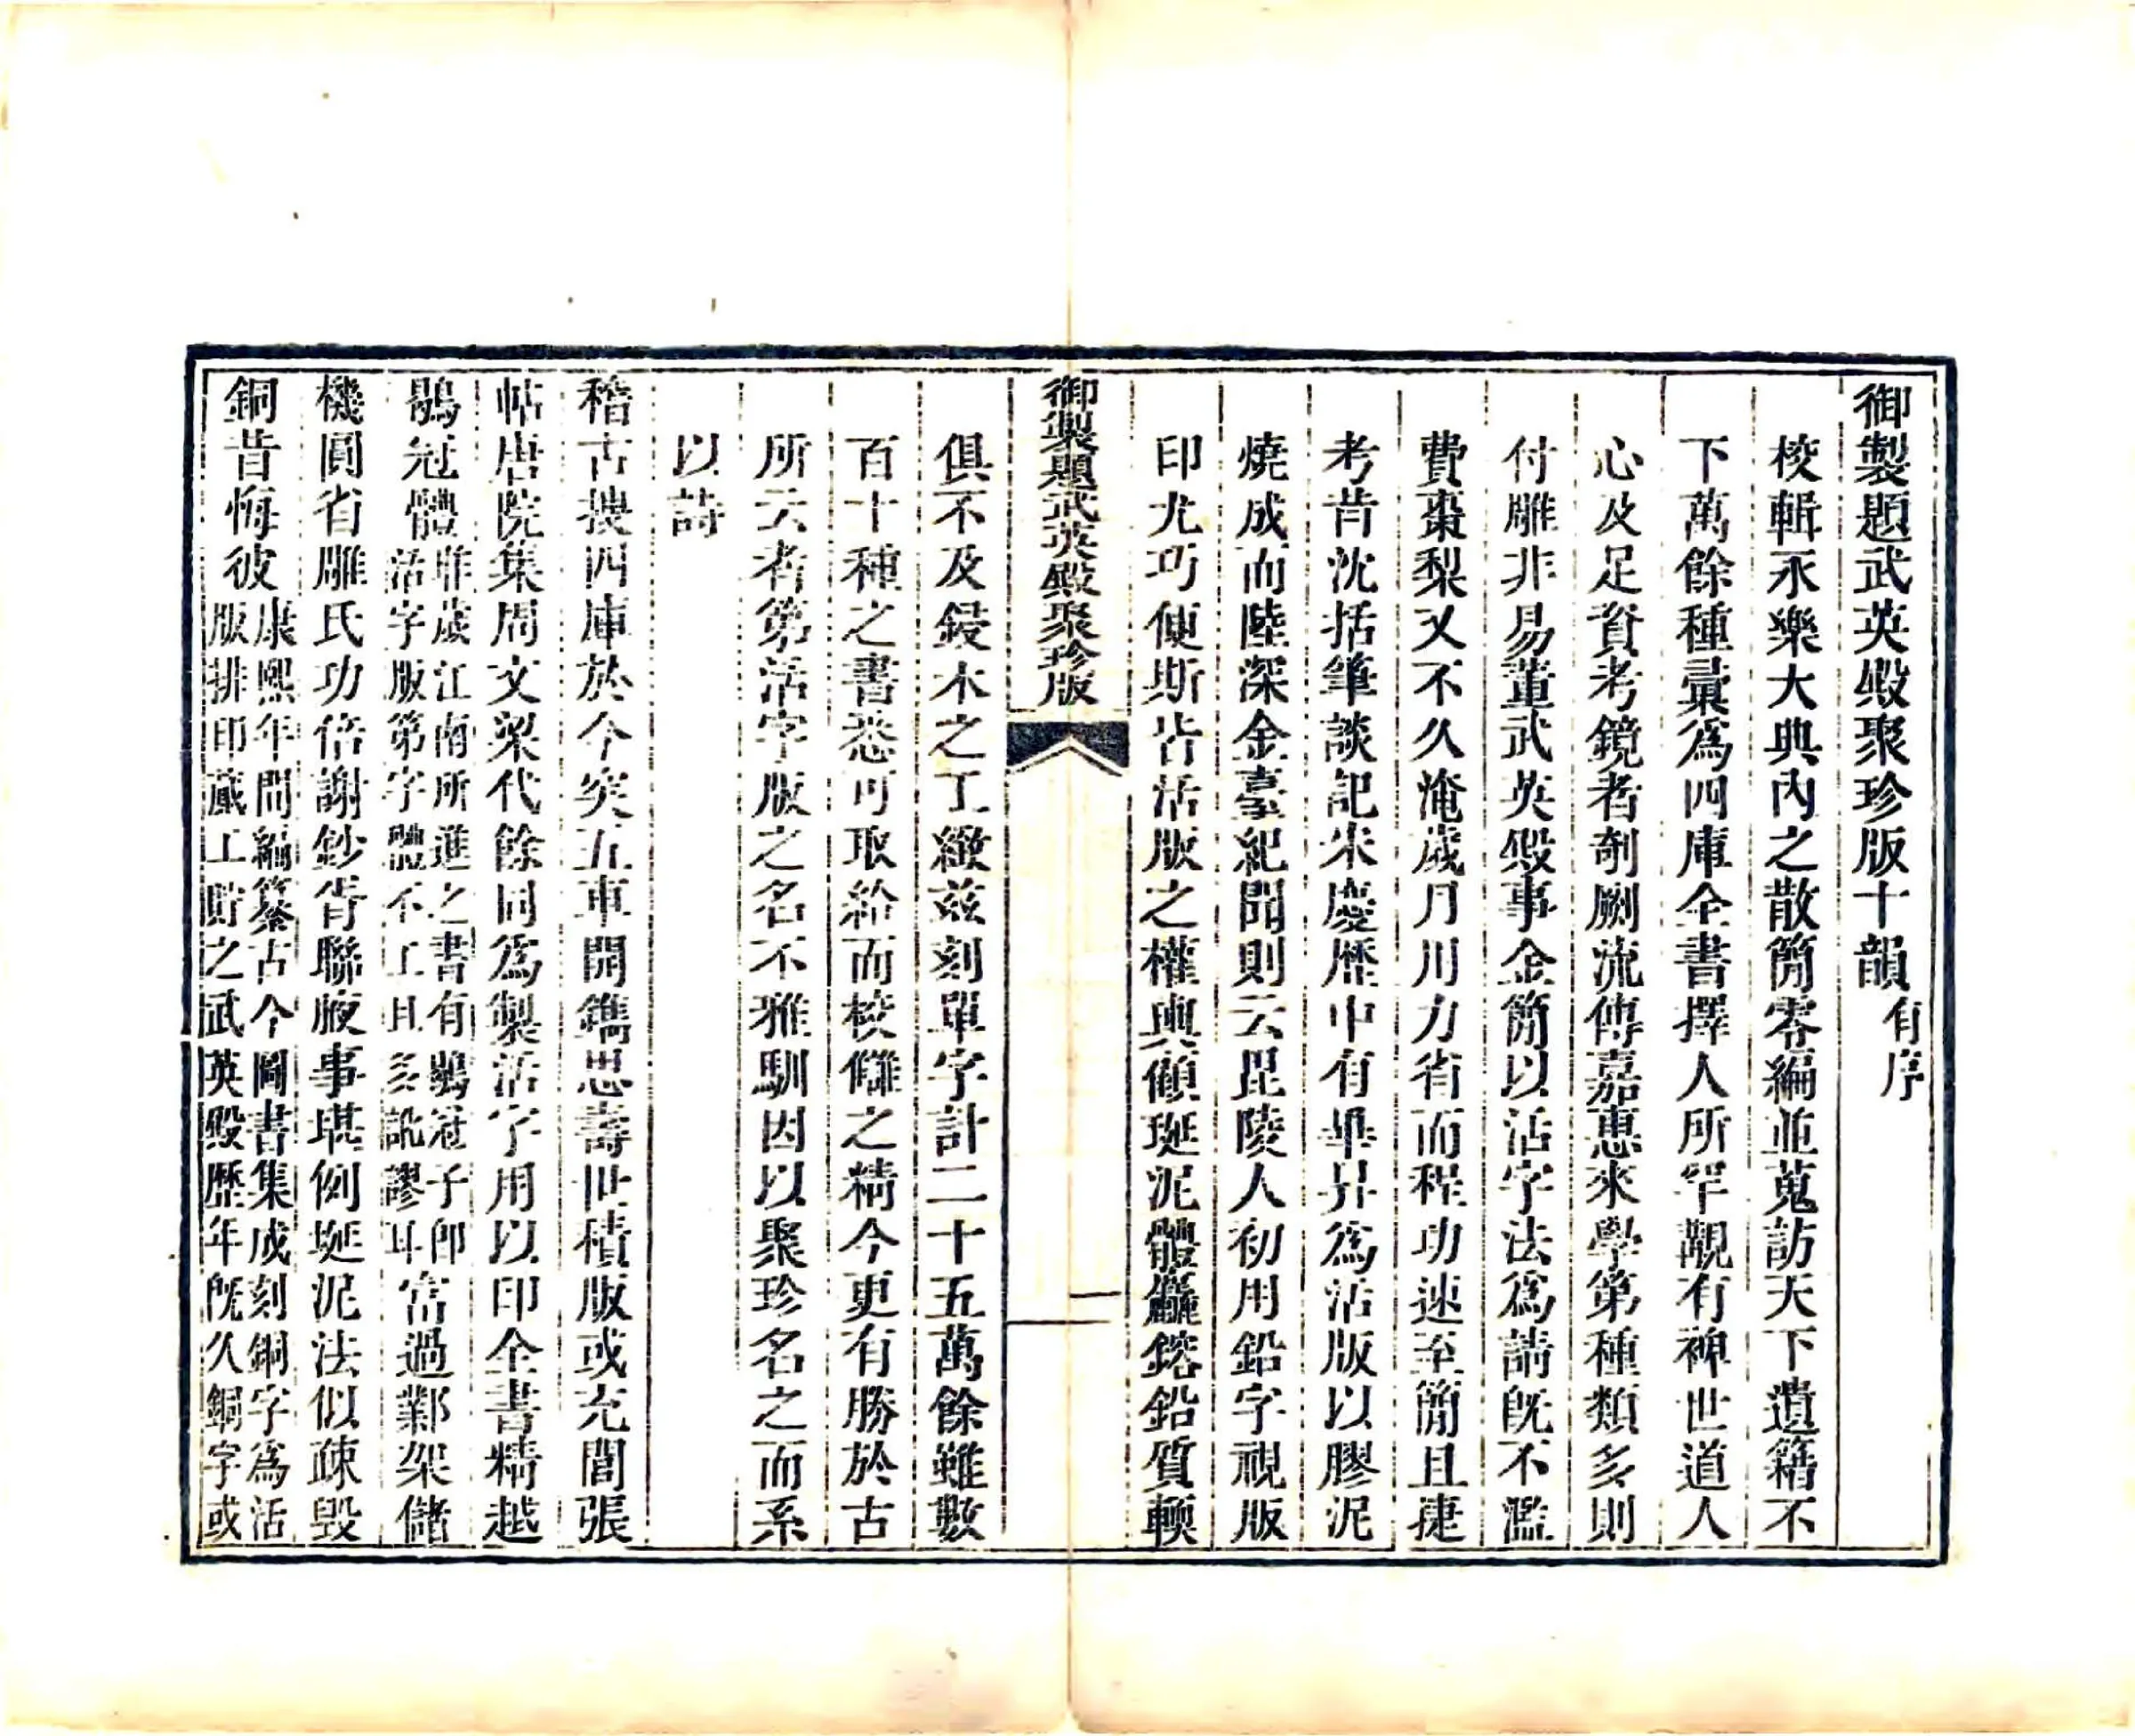 御製題武英殿聚珍版十韻有序
校輯永樂大典內之散簡零編並蒐訪天下遺籍不
下萬餘種彙爲四庫全書擇人所罕覯有裨世道人
心及足資考鏡者剞劂流傳嘉惠來學第種類多則
付雕非易董武英殿事金簡以活字法爲請旣不濫
費棗梨又不久淹歲月用力省而程功速至簡且捷
考昔沈括筆談記宋慶歷中有畢昇爲活版以膠泥
燒成而陸深金臺紀聞則云毘陵人初用鉛字視版
印尤巧便斯皆活版之權輿顧埏泥體麤鎔鉛質輭
御製題武英殿聚珍版
一
俱不及鋟木之工緻茲刻單字計二十五萬餘雖數
百十種之書悉可取給而校讎之精今更有勝於古
所云者第活字版之名不雅馴因以聚珍名之而系
以詩
稽古搜四庫於今突五車開鐫思壽世積版或充閭張
帖唐院集周文梁代餘同爲製活字用以印全書精越
鶡冠體昨歲江南所進之書有鶡冠子卽活字版第字體不工且多訛謬耳富過鄴架儲
機圓省雕氏功倍謝鈔胥聯腋事堪例埏泥法似疎毀
銅昔悔彼康熙年間編纂古今圖書集成刻銅字爲活版排印蕆工貯之武英殿歷年旣久銅字或